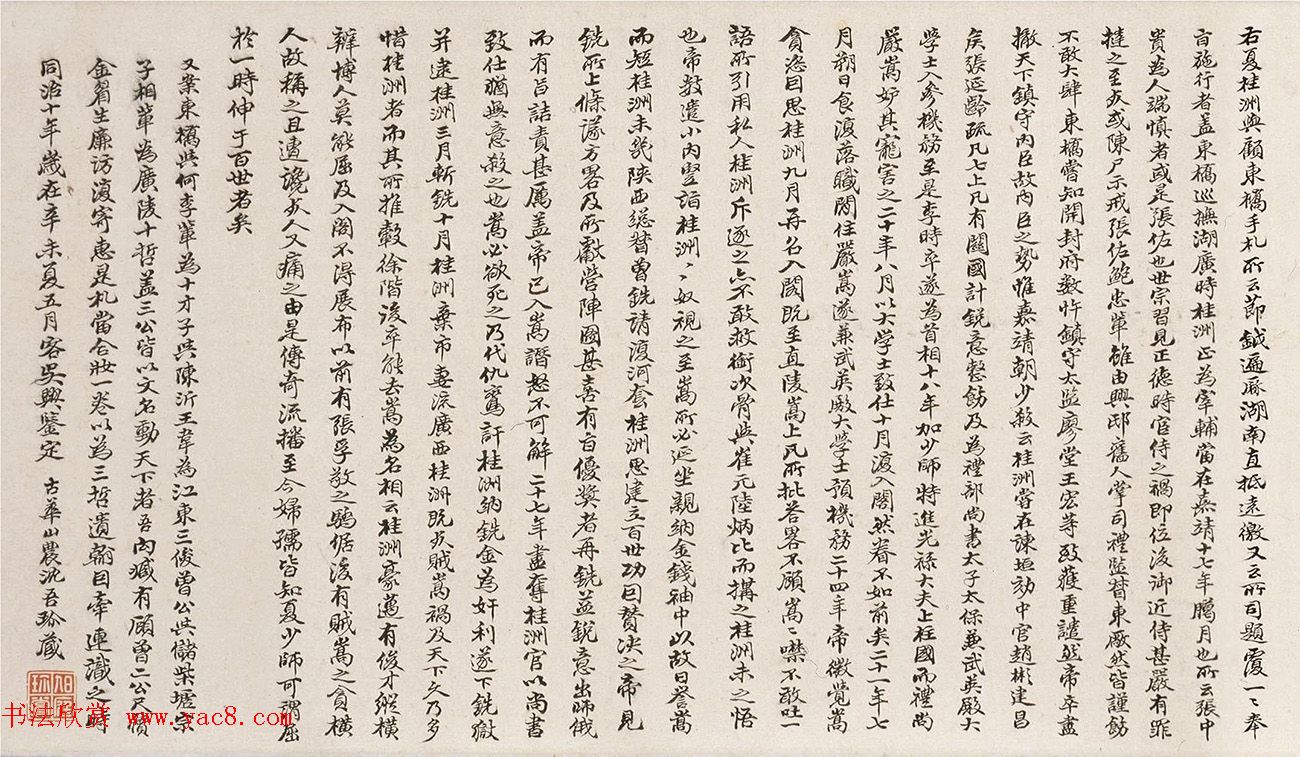 右夏桂洲與顧東橋手札所云節鉞遍厤湖南直抵遠徼又云所司題覆一〻奉
旨施行者盖東橋巡撫湖廣時桂洲正為宰輔當在嘉靖十七年臘月也所云張中
貴為人端慎者或是張佐也世宗習見正德時宦侍之禍即位後御近侍甚嚴有罪
撻之至死或陳尸示戒張佐鮑忠軰雖由興邸舊人掌司禮監督東厰然皆謹飭
不敢大肆東橋嘗知開封府數忤鎮守太監廖堂王宏等致獲重譴然帝卒盡
撤天下鎮守內臣故內臣之勢惟嘉靖朝少殺云桂洲嘗在諫垣劾中官趙彬建昌
矦張延齡疏凡七上凡有關國計銳意整飭及為禮部尚書太子太保兼武英殿大
學士入參機務至是李時卒遂為首相十八年加少師特進光祿大夫上柱國而禮尚
嚴嵩妒其寵害之二十年八月以大學士致仕十月復入閣然眷不如前矣二十一年七
月朔日食復落職閒住嚴嵩遂兼武英殿大學士預機務二十四年帝微覺嵩
貪恣因思桂洲九月再召入閣既至直陵嵩上凡所批荅畧不顧嵩〻噤不敢吐一
語所引用私人桂洲斥逐之亦不敢救銜次骨與崔元陸炳比而搆之桂洲未之悟
也帝數遣小內豎詣桂洲〻奴視之至嵩所必延坐親納金錢袖中以故日譽嵩
而短桂洲未幾陝西總督曾銑請復河套桂洲思建立百世功因贊決之帝見
銑所上條議方畧及所獻營陣圖甚善有旨優奬者再銑益銳意出師俄
而有旨詰責甚厲盖帝已入嵩譖怒不可解二十七年盡奪桂洲官以尚書
致仕猶無意殺之也嵩必欲死之乃代仇鸞訐桂洲納銑金為奸利遂下銑獄
并逮桂洲三月斬銑十月桂洲棄市妻流廣西桂洲既死賊嵩禍及天下久乃多
惜桂洲者而其所推轂徐階後卒能去嵩為名相云桂洲豪邁有俊才縱橫
辯博人莫能屈及入閣不得展布以前有張孚敬之驕倨後有賊嵩之貪橫
人故稱之且遭讒死人又痛之由是傳奇流播至今婦孺皆知夏少師可謂屈
於一時伸于百世者矣
又案東橋與何李軰為十才子與陳沂王韋為江東三俊曾公與儲柴墟宗
子相軰為廣陵十哲盖三公皆以文名動天下者吾內臧有顧曾二公尺牘
金眉生廉訪復寄惠是札當合妝一卷以為三哲遺翰因牽連識之時
同治十年歲在辛未夏五月客吳興鑒定 古華山農沈吾珍藏
书法欣赏 www.yac8.com